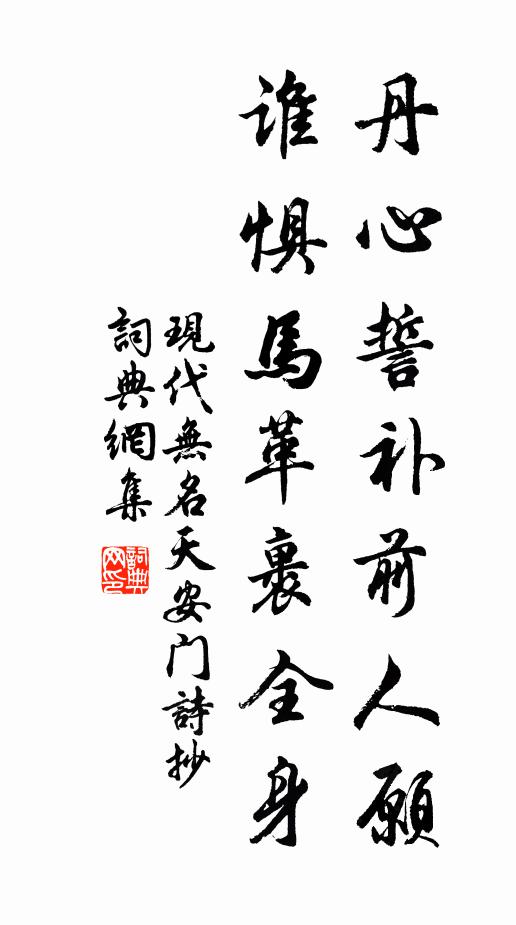 丹心誓补前人願
谁惧馬革裹全身
現代無名天安门詩抄
詞典網集
詞典
网印